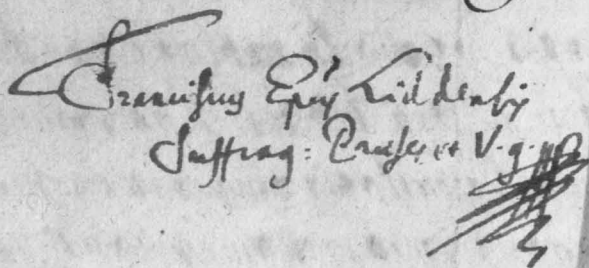 Franciscus Epūs Liddensis
Suffrag: et V. g.